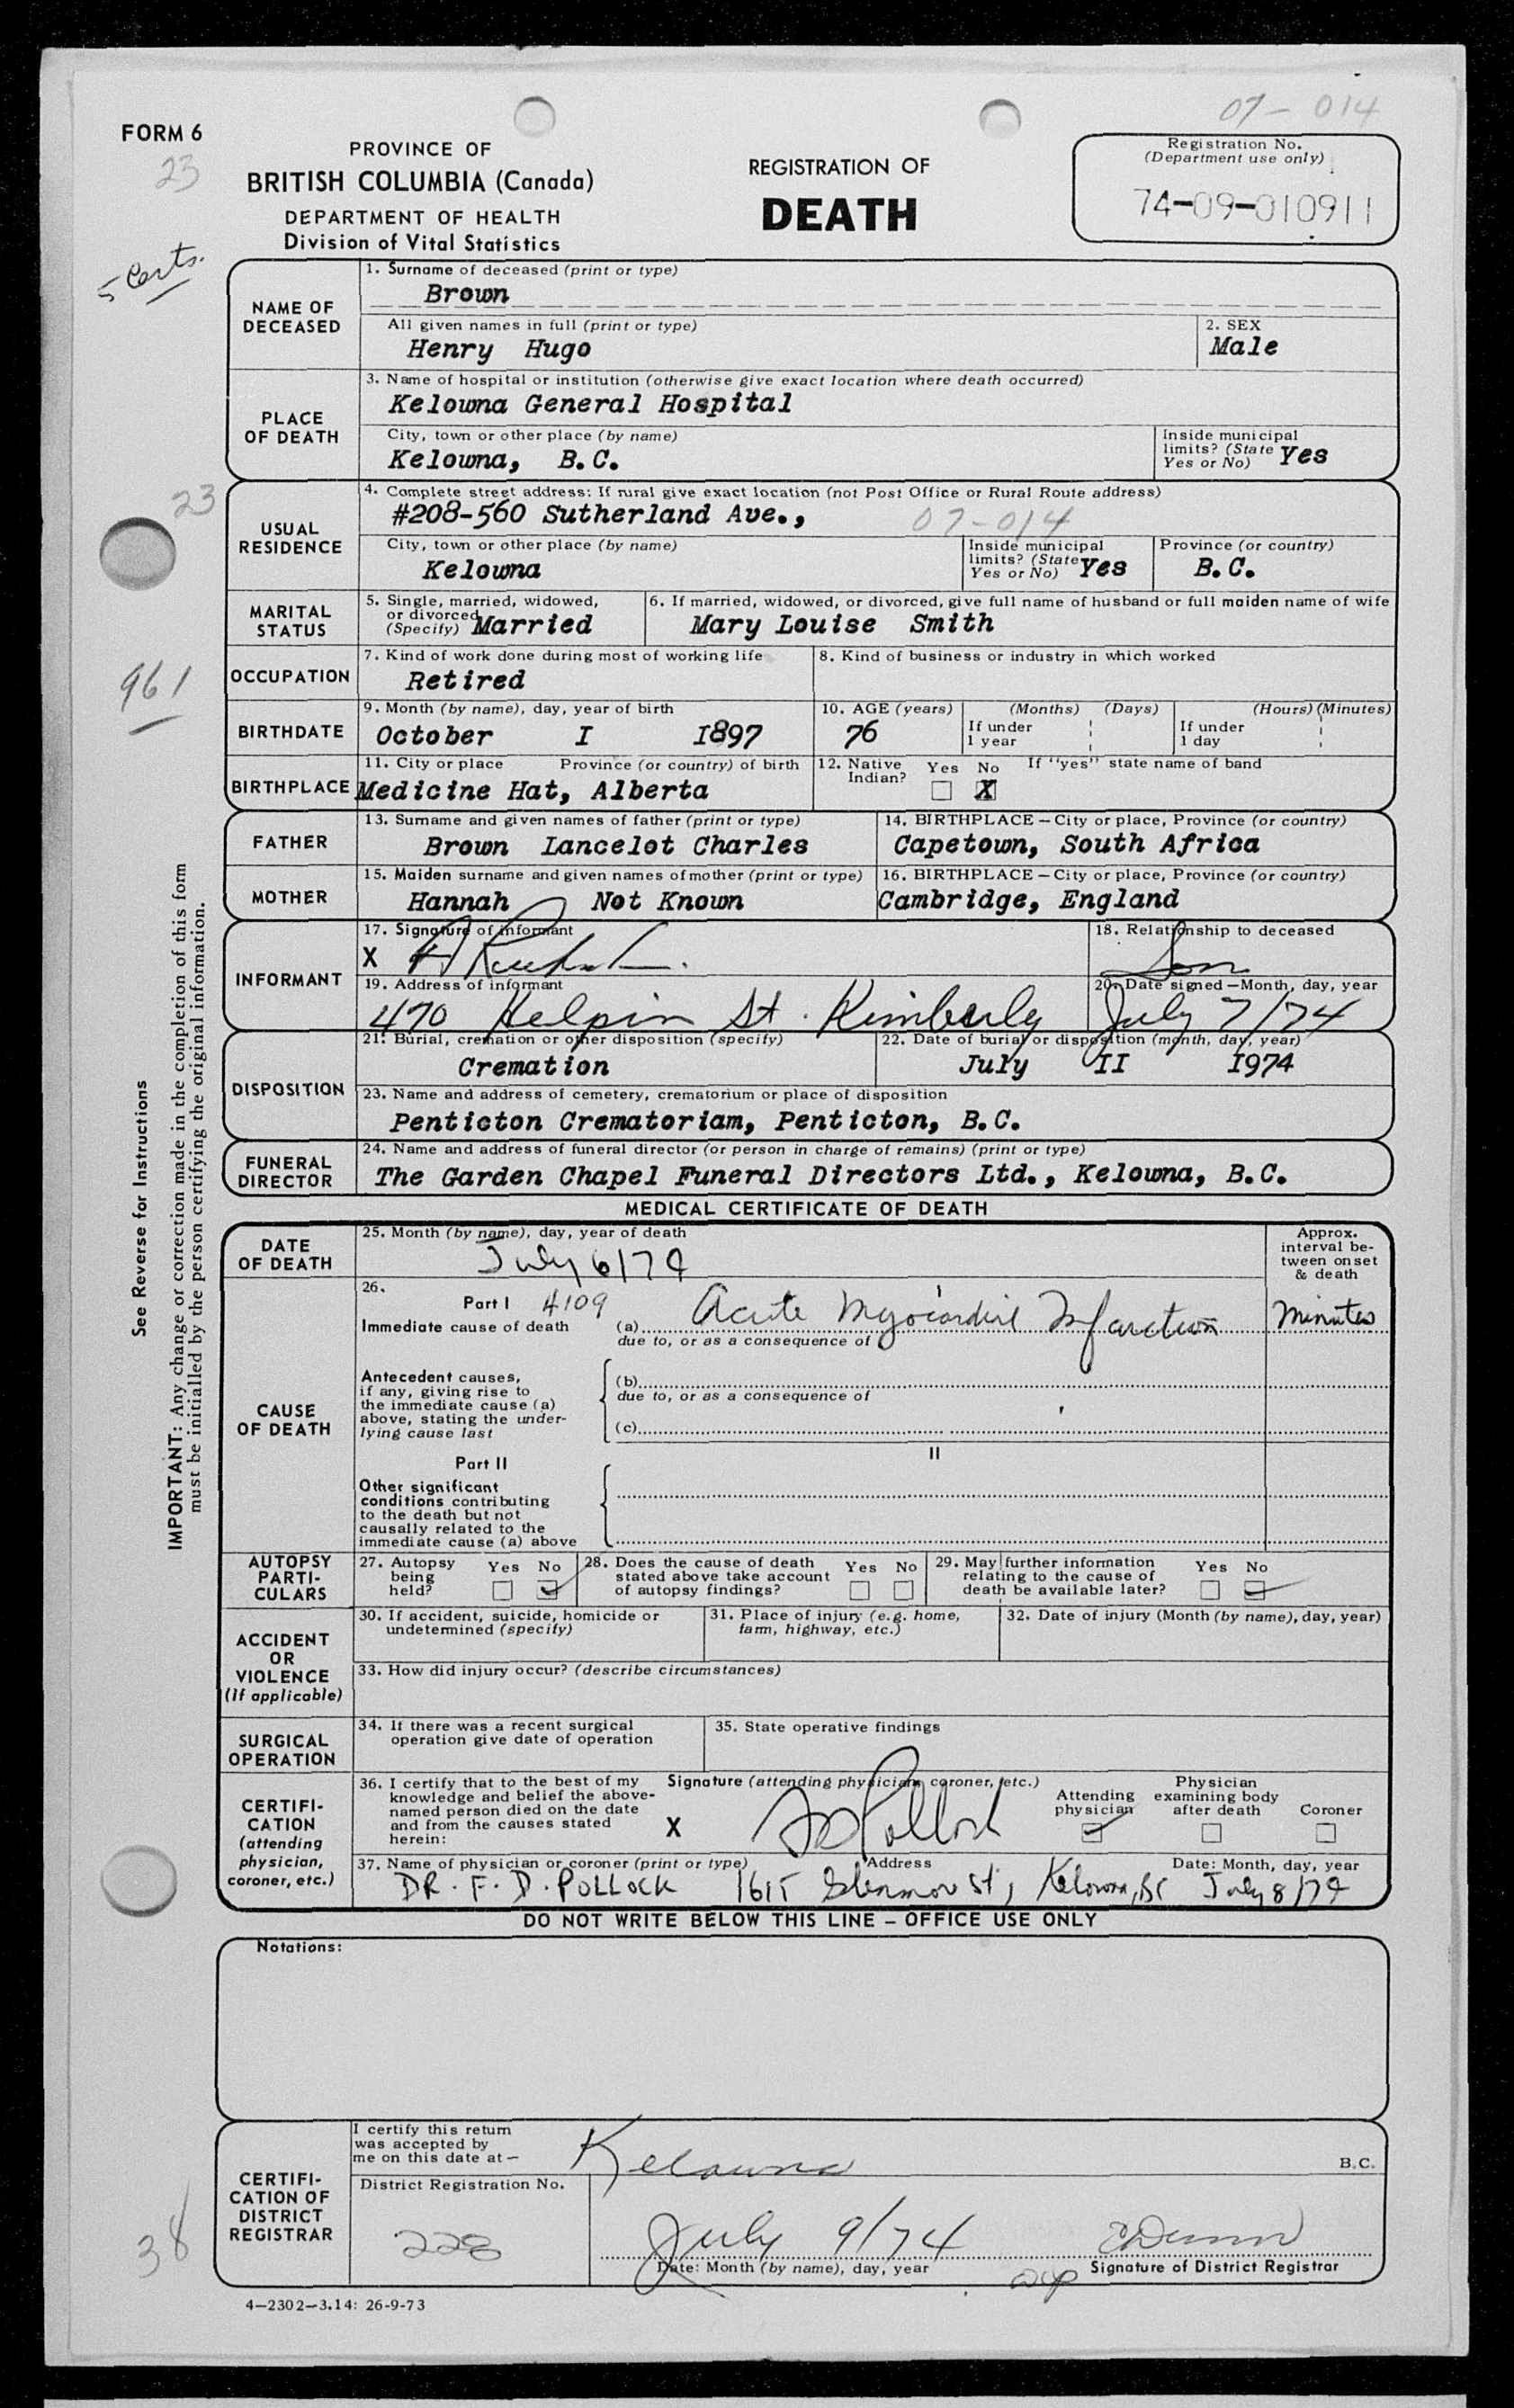 07-014
FORM 6
23
PROVINCE OF
BRITISH COLUMBIA (Canada)
DEPARTMENT OF HEALTH
Division of Vital Statistics
REGISTRATION OF
DEATH
Registration No.
(Department use only)
74-09-010911
5 Certs.
NAME OF DECEASED
1. Surname of deceased (print or type)
Brown
All given names in full (print or type)
Henry Hugo
2. SEX
Male
PLACE OF DEATH
3. Name of hospital or institution (otherwise give exact location where death occurred)
Kelowna General Hospital
City, town or other place (by name)
Kelowna, B.C.
Inside municipal limits? (State Yes or No) Yes
23
USUAL RESIDENCE
4. Complete street address: If rural give exact location (not Post Office or Rural Route address)
#208-560 Sutherland Ave., 07-014
City, town or other place (by name)
Kelowna
Inside municipal limits? (State Yes or No) Yes
Province (or country)
B.C.
MARITAL STATUS
5. Single, married, widowed, or divorced (Specify) Married
6. If married, widowed, or divorced, give full name of husband or full maiden name of wife
Mary Louise Smith
961
OCCUPATION
7. Kind of work done during most of working life
Retired
8. Kind of business or industry in which worked
BIRTHDATE
9. Month (by name), day, year of birth
October I I897
10. AGE (years)
76
(Months) (Days)
If under 1 year
(Hours) (Minutes)
If under 1 day
BIRTHPLACE
11. City or place Province (or country) of birth
Medicine Hat, Alberta
12. Native Indian? Yes No X
If "yes" state name of band
FATHER
13. Surname and given names of father (print or type)
Brown Lancelot Charles
14. BIRTHPLACE – City or place, Province (or country)
Capetown, South Africa
MOTHER
15. Maiden surname and given names of mother (print or type)
Hannah Not Known
16. BIRTHPLACE – City or place, Province (or country)
Cambridge, England
INFORMANT
17. Signature of informant
X
18. Relationship to deceased
Son
19. Address of informant
470 St. Kimberly
20. Date signed – Month, day, year
July 7/74
DISPOSITION
21. Burial, cremation or other disposition (specify)
Cremation
22. Date of burial or disposition (month, day, year)
July II I974
23. Name and address of cemetery, crematorium or place of disposition
Penticton Crematoriam, Penticton, B.C.
FUNERAL DIRECTOR
24. Name and address of funeral director (or person in charge of remains) (print or type)
The Garden Chapel Funeral Directors Ltd., Kelowna, B.C.
See Reverse for Instructions
IMPORTANT: Any change or correction made in the completion of this form
must be initialled by the person certifying the original information.
MEDICAL CERTIFICATE OF DEATH
DATE OF DEATH
25. Month (by name), day, year of death
July 6/74
Approx. interval between onset & death
CAUSE OF DEATH
26.
Part I 4109
Immediate cause of death
(a) Acute Myocardial Infarction
Minutes
due to, or as a consequence of
Antecedent causes,
if any, giving rise to
the immediate cause (a)
above, stating the under-
lying cause last
(b)
due to, or as a consequence of
(c)
Part II
II
Other significant
conditions contributing
to the death but not
causally related to the
immediate cause (a) above
AUTOPSY PARTI-CULARS
27. Autopsy being held? Yes No
28. Does the cause of death stated above take account of autopsy findings? Yes No
29. May further information relating to the cause of death be available later? Yes No
ACCIDENT OR VIOLENCE (if applicable)
30. If accident, suicide, homicide or undetermined (specify)
31. Place of injury (e.g. home, farm, highway, etc.)
32. Date of injury (Month (by name), day, year)
33. How did injury occur? (describe circumstances)
SURGICAL OPERATION
34. If there was a recent surgical operation give date of operation
35. State operative findings
CERTIFI-CATION (attending physician, coroner, etc.)
36. I certify that to the best of my
knowledge and belief the above-
named person died on the date
and from the causes stated
herein:
Signature (attending physician, coroner, etc.)
X Pollock
Attending physician
Physician examining body after death
Coroner
37. Name of physician or coroner (print or type)
Address
Date: Month, day, year
DR. F. D. POLLOCK 1615 St, Kelowna, BC July 8/74
DO NOT WRITE BELOW THIS LINE – OFFICE USE ONLY
Notations:
CERTIFI-CATION OF DISTRICT REGISTRAR
I certify this return
was accepted by
me on this date at –
Kelowna
B.C.
District Registration No.
228
July 9/74
Date: Month (by name), day, year
Signature of District Registrar
38
4–2302–3.14: 26-9-73